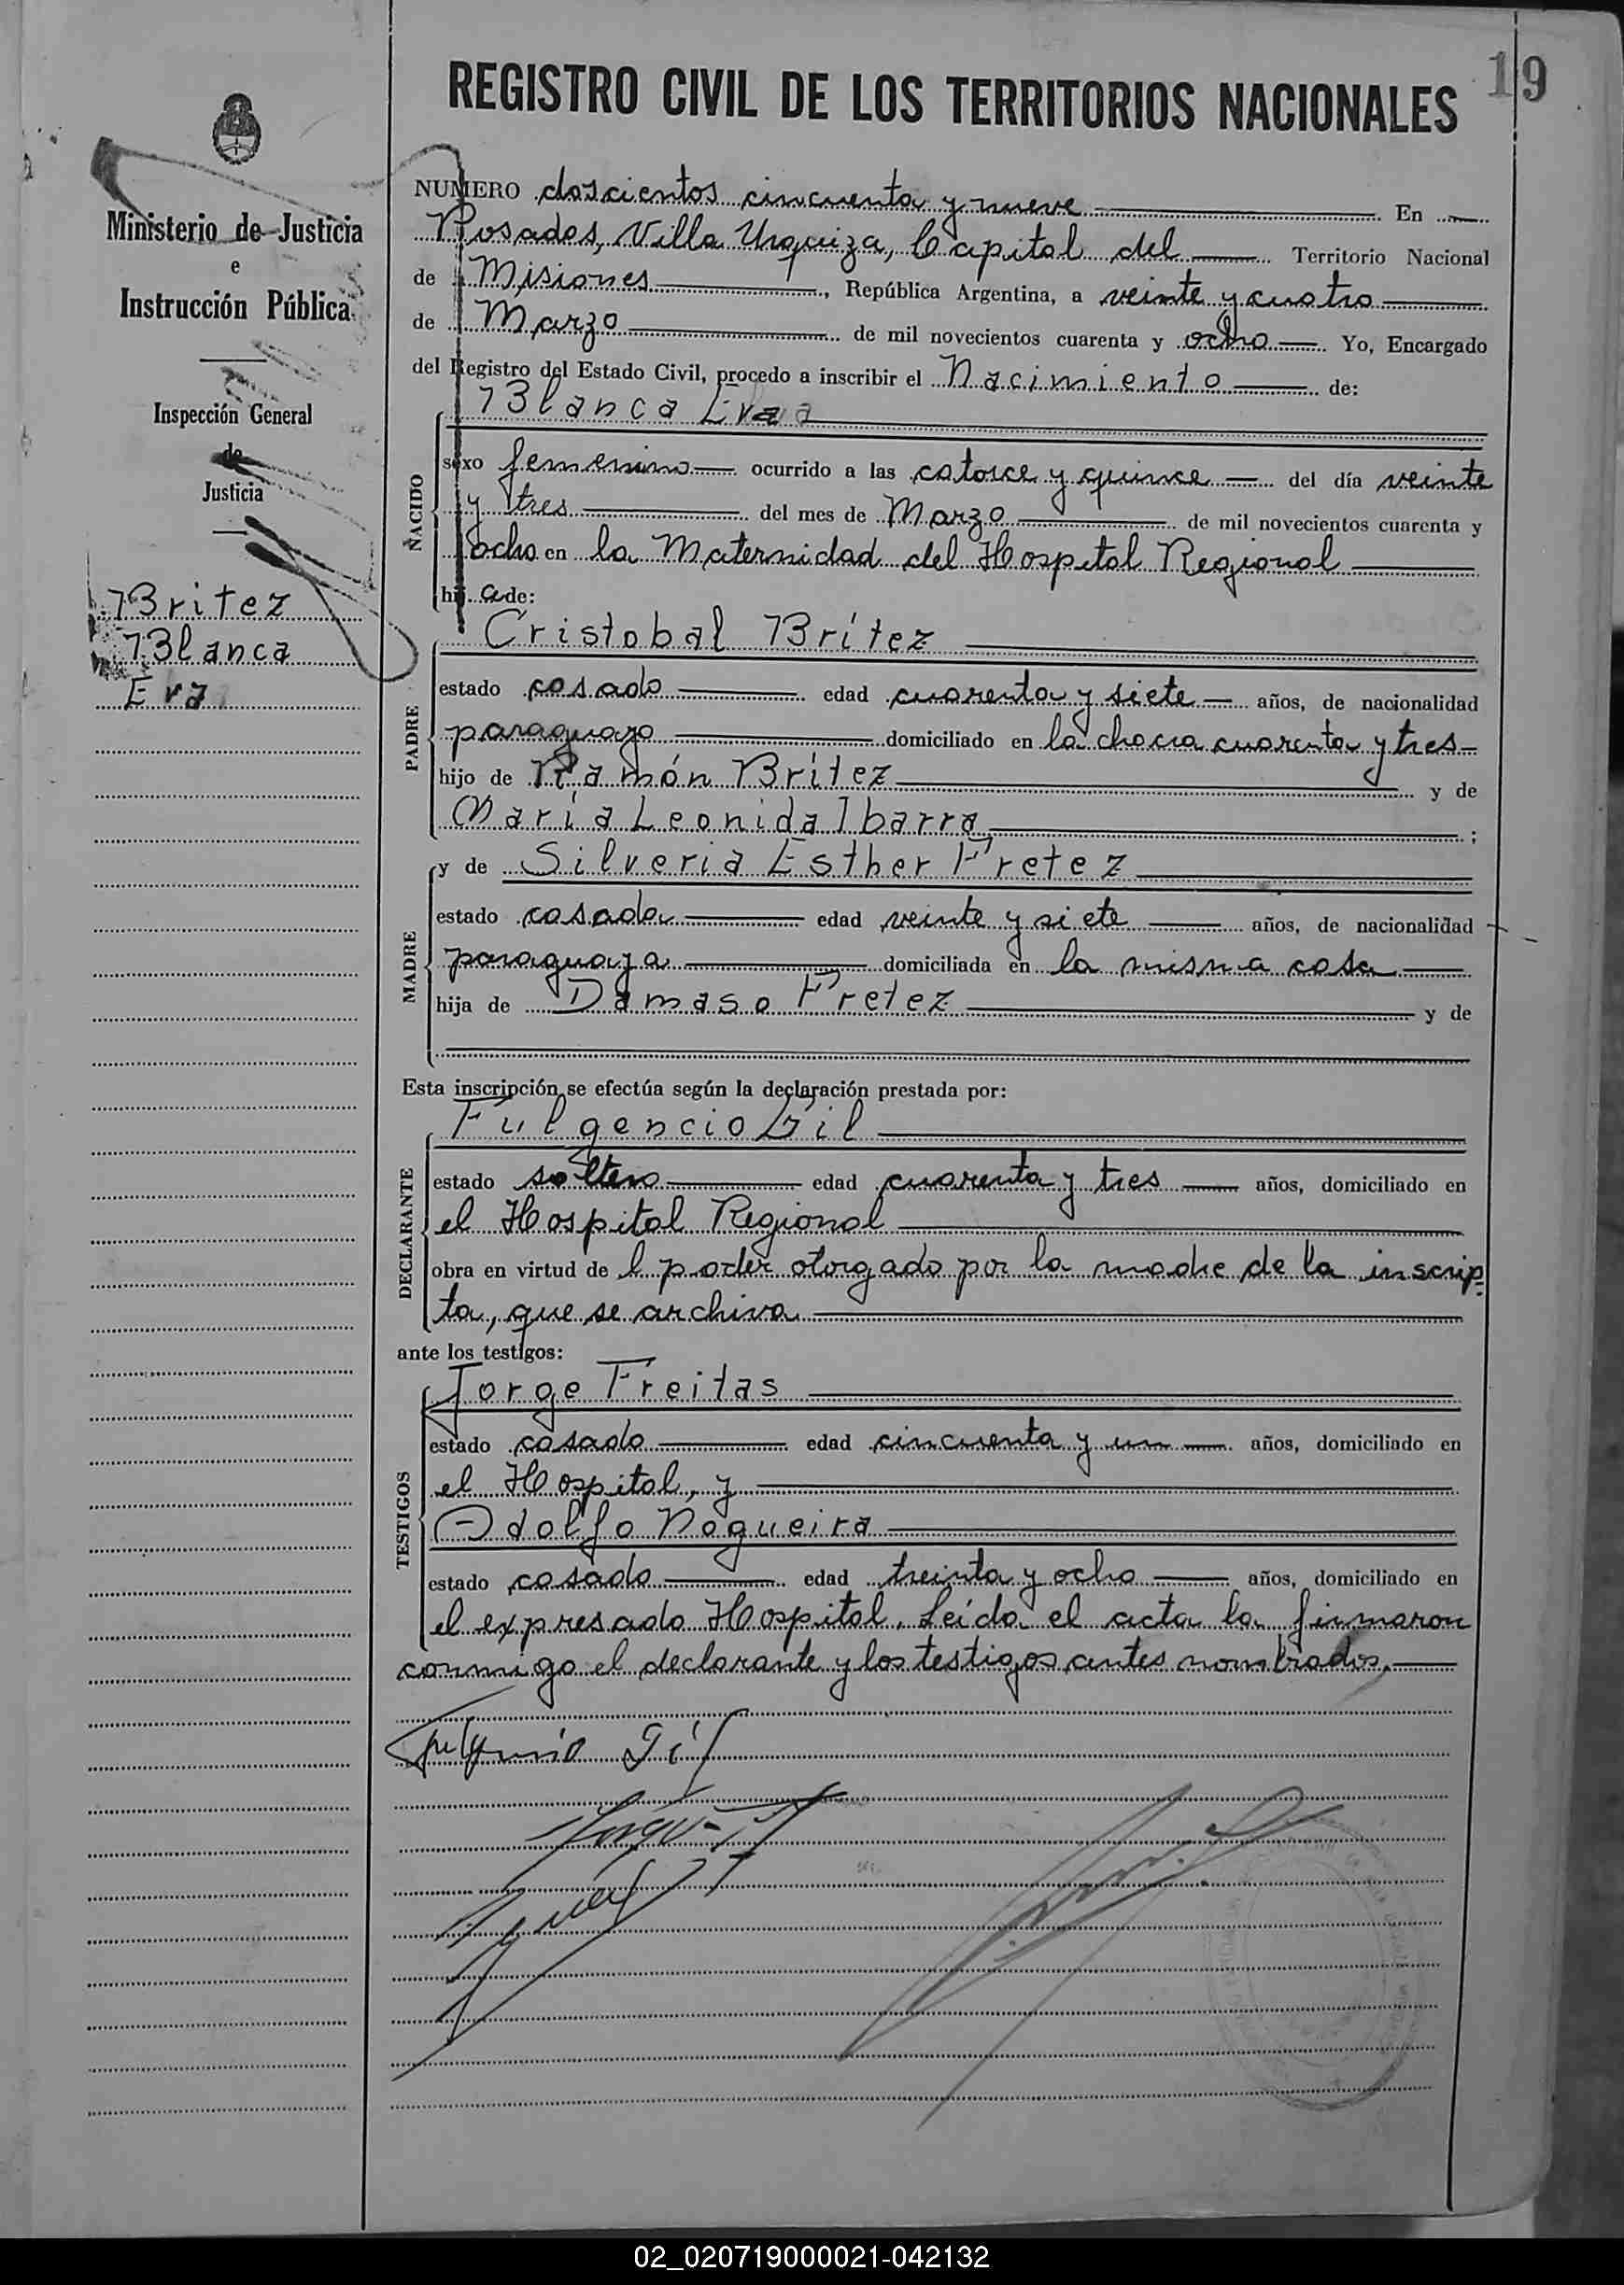 19
REGISTRO CIVIL DE LOS TERRITORIOS NACIONALES
Ministerio de Justicia
e
Instrucción Pública
Inspección General
de
Justicia
Britez
Blanca
Eva
NUMERO doscientos cincuenta y nueve En
Posadas, Villa Urquiza, Capital del Territorio Nacional
de Misiones, República Argentina, a veinte y cuatro
de Marzo de mil novecientos cuarenta y ocho Yo, Encargado
del Registro del Estado Civil, procedo a inscribir el Nacimiento de:
Blanca Eva
NACIDO
sexo femenino ocurrido a las catorce y quince del día veinte
y tres del mes de Marzo de mil novecientos cuarenta y
ocho en la Maternidad del Hospital Regional
hij a de:
PADRE
Cristobal Brítez
estado casado edad cuarenta y siete años, de nacionalidad
paraguayo domiciliado en la chacra cuarenta y tres
hijo de Ramón Brítez y de
María Leonida Ibarra ;
MADRE
y de Silveria Esther Fretez
estado casada edad veinte y siete años, de nacionalidad
paraguaya domiciliada en la misma casa
hija de Damaso Fretez y de
Esta inscripción se efectúa según la declaración prestada por:
DECLARANTE
Fulgencio Gil
estado soltero edad cuarenta y tres años, domiciliado en
el Hospital Regional
obra en virtud de l poder otorgado por la madre de la inscrip=
ta, que se archiva
ante los testigos:
TESTIGOS
Jorge Freitas
estado casado edad cincuenta y un años, domiciliado en
el Hospital, y
Adolfo Nogueira
estado casado edad treinta y ocho años, domiciliado en
el expresado Hospital. Leída el acta la firmaron
conmigo el declarante y los testigos antes nombrados.
Fulgencio Gil
02_020719000021-042132